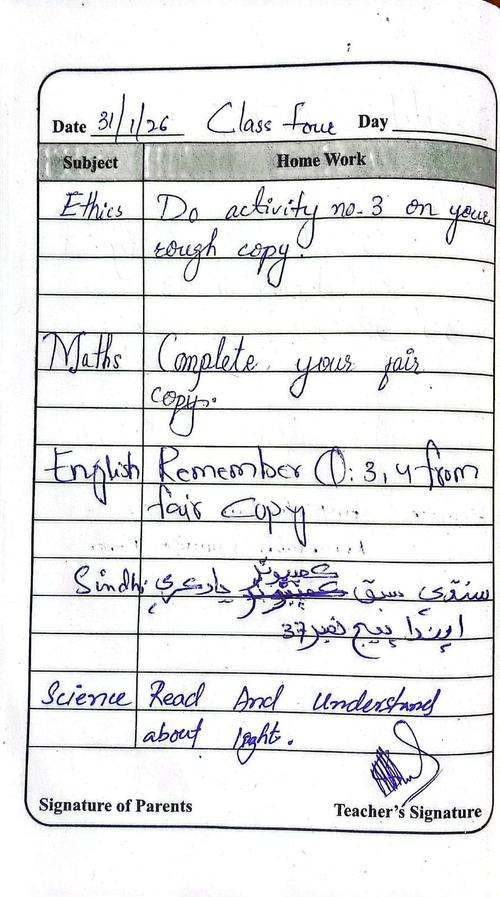 Date 31/1/26 Class four Day
Subject Home Work
Ethics Do activity no. 3 on your
rough copy.
Maths Complete your fair
copy.
English Remember Q: 3, 4 from
fair copy
Sindhi سنڌي سبق ڪمپيوٽر ياد ڪري
پيج نمبر 37
Science Read And Understand
about light.
Signature of Parents Teacher's Signature